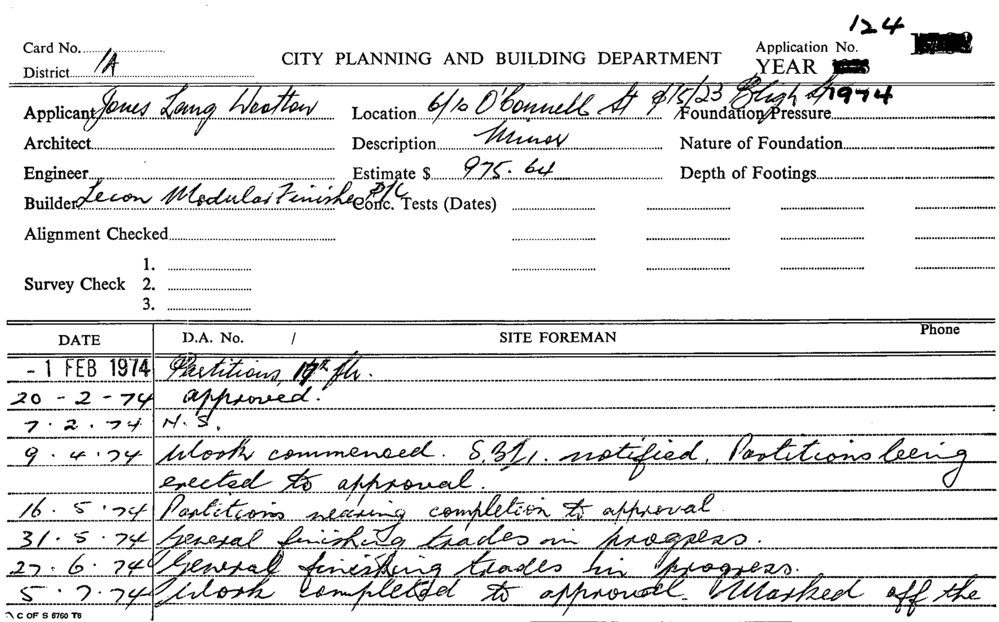 124
Card No. CITY PLANNING AND BUILDING DEPARTMENT Application No.
District 1A YEAR 1974
Applicant Jones Lang Wootton Location 6/10 O'Connell St & 15/23 Bligh St Foundation Pressure
Architect Description Minor Nature of Foundation
Engineer Estimate $ 975.64 Depth of Footings
Builder Lecon Modular Finishes P/L Conc. Tests (Dates)
Alignment Checked
1.
Survey Check 2.
3.
DATE D.A. No. / SITE FOREMAN Phone
- 1 FEB 1974 Partitions, flr.
20 - 2 - 74 approved.
7 . 2 . 74 N.S.
9 . 4 . 74 Work commenced. notified. Partitions being
erected to approval.
16 . 5 . 74 Partitions nearing completion to approval
31 . 5 . 74 General finishing trades in progress.
27 . 6 . 74 General finishing trades in progress.
5 . 7 . 74 Work completed to approval. Marked off the
C OF S 6760 T6